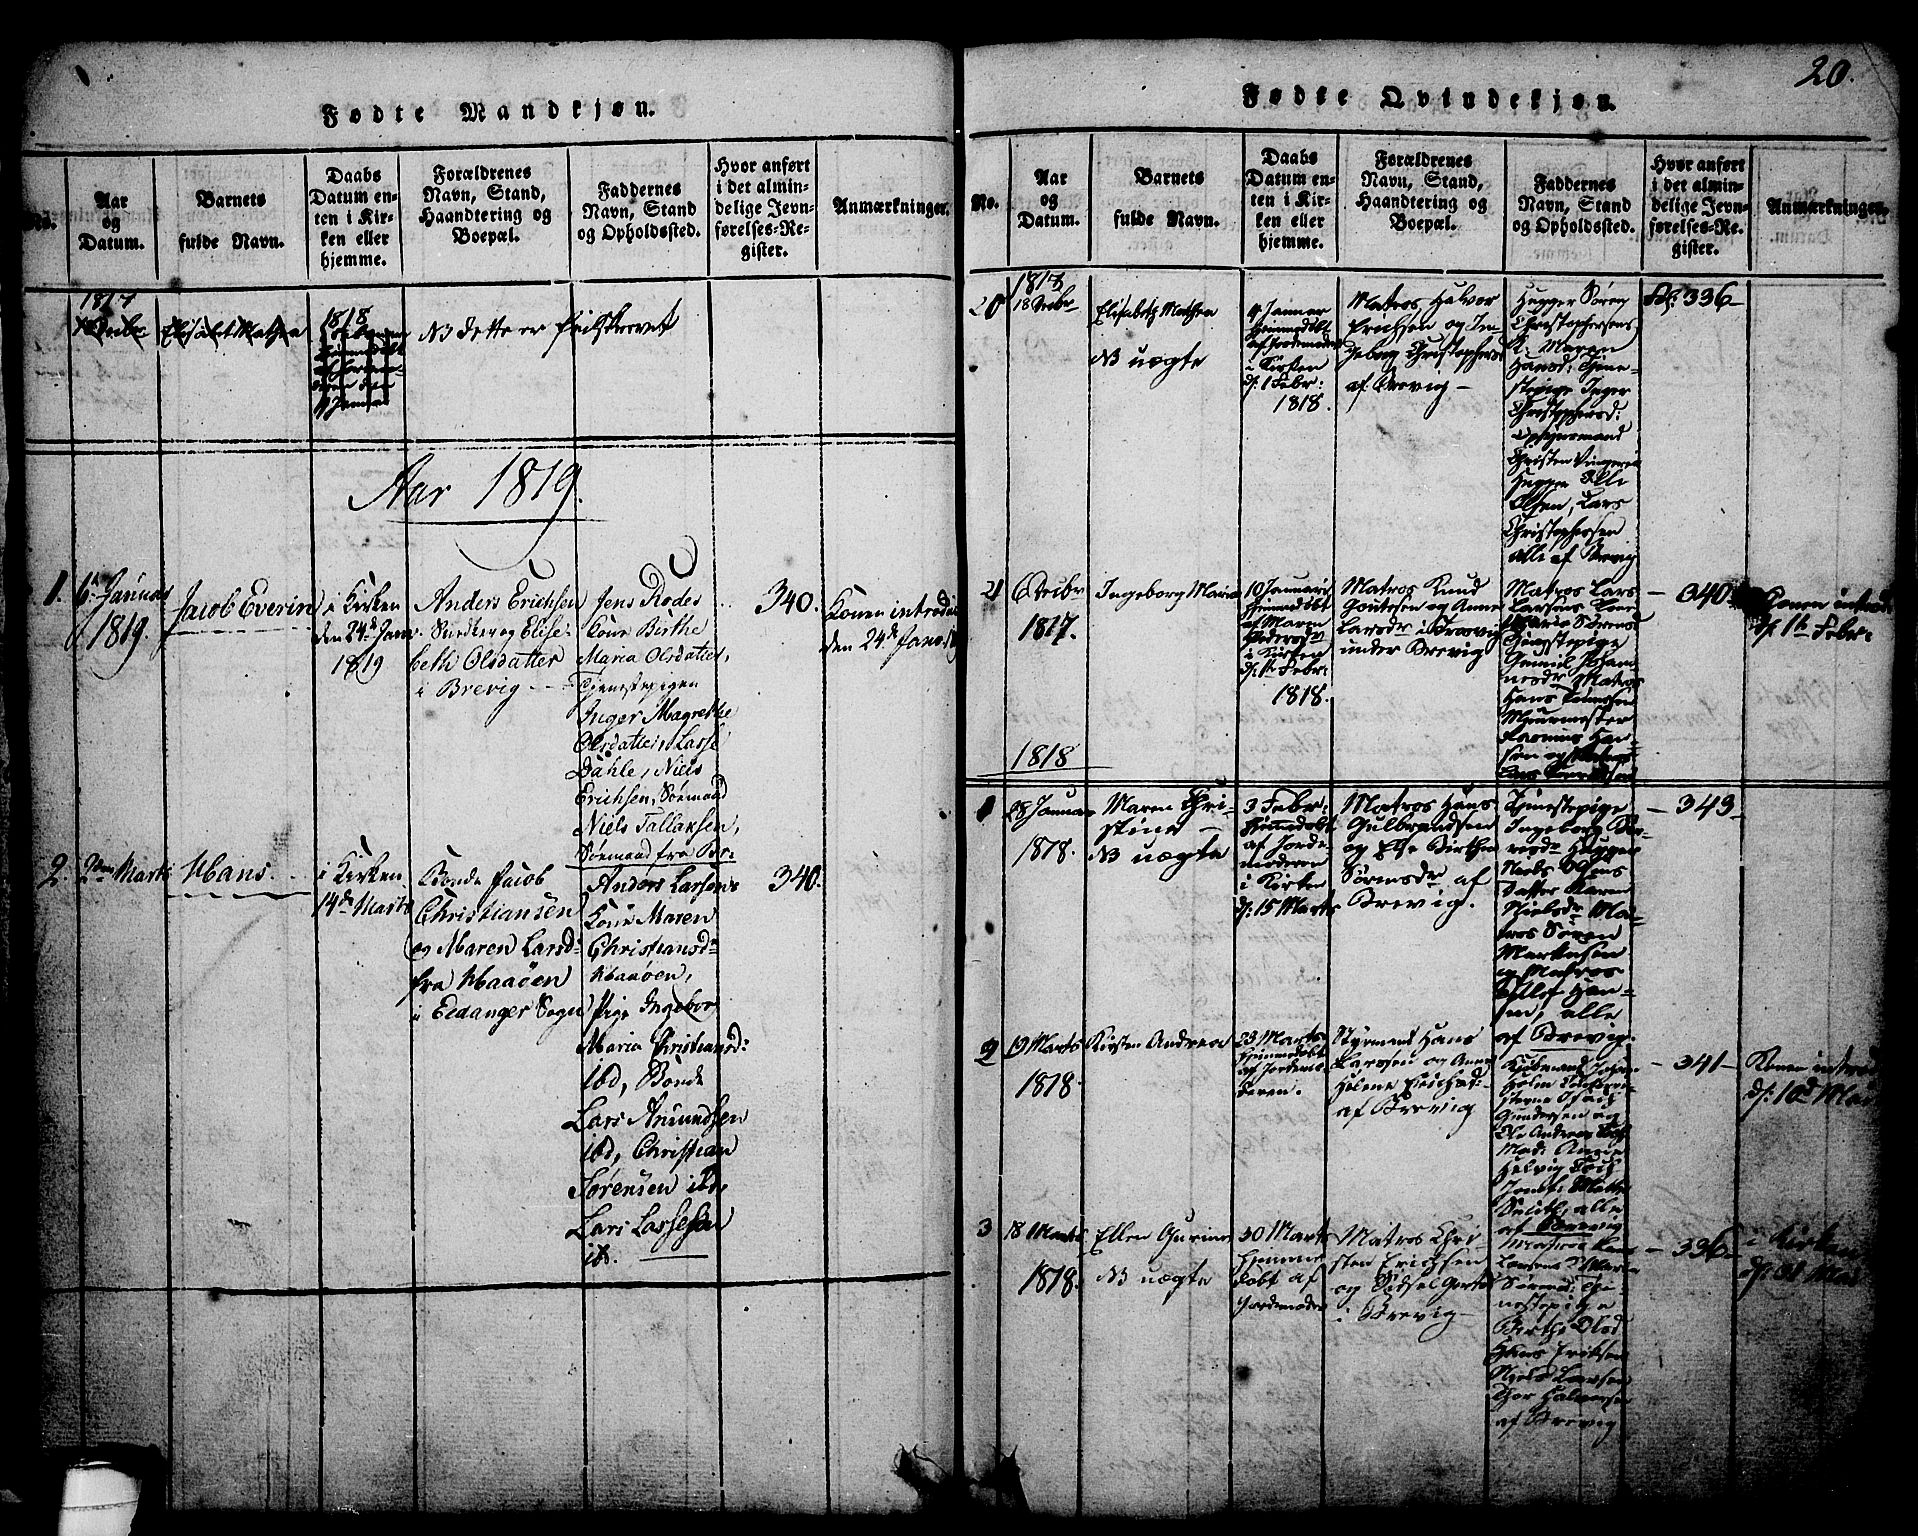 20.
Fødte Mandkjøn.
No.
Aar
og
Datum.
Barnets
fulde Navn.
Daabs
Datum en-
ten i Kir-
ken eller
hjemme.
Forældrenes
Navn, Stand,
Haandtering og
Boepæl.
Faddernes
Navn, Stand
og Opholdssted.
Hvor anført
i det almin-
delige Jevn-
førelses-Re-
gister.
Anmærkninger.
1817
18 Decbr
Elisabet Mathea
1818
NB dette er feilskrevet
Aar 1819.
1.
6te Januar
1819.
Jacob Everin
i Kirken
den 24de Jan
1819
Anders Erichsen
Snedker og Elise-
beth Olsdatter
i Brevig
Jens Rodes
Kone Birthe
Maria Olsdatter,
Tjenestepigen
Inger Magrethe
Olsdatter, Lasse
Dahle, Niels
Erichsen, Sømand
Niels Tallaksen,
Sømand fra Br:
340.
Konen introd:
den 24de Jan:
2.
2den Marts
Hans.
i Kirken
14de Marts
Bonde Jacob
Christiansen
og Maren Larsd:
fra Haaöen
i Eedanger Sogn
Anders Larsens
Kone Maren
Christiansdr
Haaöen,
Pige Ingebor
Maria Christiansd:
ibd, Bonde
Lars Amundsen
ibd, Christian
Sörensen ibd,
Lars Lassesen
ib.
340.
Fødte Qvindekjøn.
No.
Aar
og
Datum.
Barnets
fulde Navn.
Daabs
Datum en-
ten i Kir-
ken eller
hjemme.
Forældrenes
Navn, Stand,
Haandtering og
Boepæl.
Faddernes
Navn, Stand
og Opholdssted.
Hvor anført
i det almin-
delige Jevn-
førelses-Re-
gister.
Anmærkninger.
20
1817
18 Decbr
Elisabeth Mathea
NB uægte
4 Januar
hjemmedöbt
af Jordemoder
i Kirken
d: 1 Febr:
1818.
Matros Halvor
Erichsen og In-
geborg Christophersd
af Brevig
Hugger Sören
Christophersens
K: Maren
Hansd: Tjene-
stepige Inger
Christophersd:
Opsynsmand
Christen
Hugger Olle
Olsen, Lars
Christophersen
alle af Brevig
Fol: 336
21
6 Decbr
1817.
Ingeborg Maria
10 Januari
hjemmedöbt
af Maren
Pedersdr
i Kirken
d: 1te Febr:
1818.
Matros Knud
og Anne
Larsdr i
under Brevig
Matros Lars
Larsens Kone
Maria Sörensd
Johan-
nesdr Matros
Hans
Muurmester
Rasmus Han-
sen og
340
Konen introd
d: 1te Febr:
1818
1
28 Januar
1818.
Maren Chri-
stine
NB uægte
3 Febr:
hjemmedöbt
af Jorde-
moderen
i Kirken
d: 15 Marts
Matros Hans
Gulbrandsen
og Else Birthe
Sörensdr af
Brevig.
Tjenestepige
Ingeborg
Hugger
Niels Olsens
Datter Karen
Nielsdr Ma-
tros Sören
Mortensen
og Matros
Han-
sen, alle
af Brevig.
343
2
19 Marts
1818
Kirsten Andrea
23 Marts
hjemmedöbt
af Jordemo-
deren.
Styrmand Hans
Larssen og Anne
Helene Erichsd:
af Brevig
Kjöbmand Johan
Holm
Isach
Gundersen og
Ole Andreas
Mad: Anne
Helvig
Jomf: Mette
alle
af Brevig
341
Konen introd
d: 10de Mai
3
18 Marts
1818.
Ellen Gurine
NB uægte
30 Marts
hjemme-
döbt af
Jordemoder
Matros Chri-
sten Erichsen
og Sidsel Gertsd
i Brevig
Matros
Larsens Maria
Sörensd: Tje-
nestepige
Birthe Olsd
Hans Eriksen
Niels Larsen
Thor Halvorsen
af Brevig
336
i Kirken
d: 31 Mai